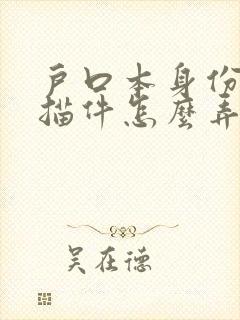 戶口本身份
描件怎麼弄
吴在德